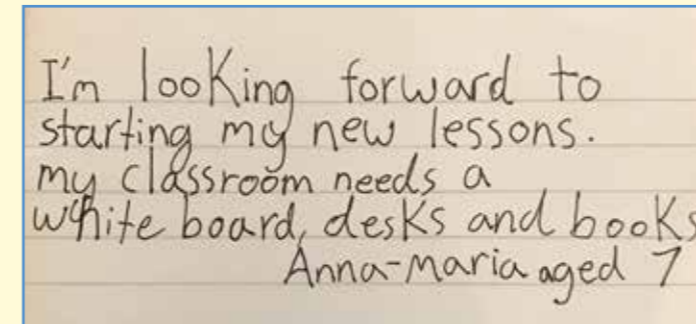 I'm looking forward to
starting my new lessons.
my classroom needs a
white board, desks and books
Anna-maria aged 7